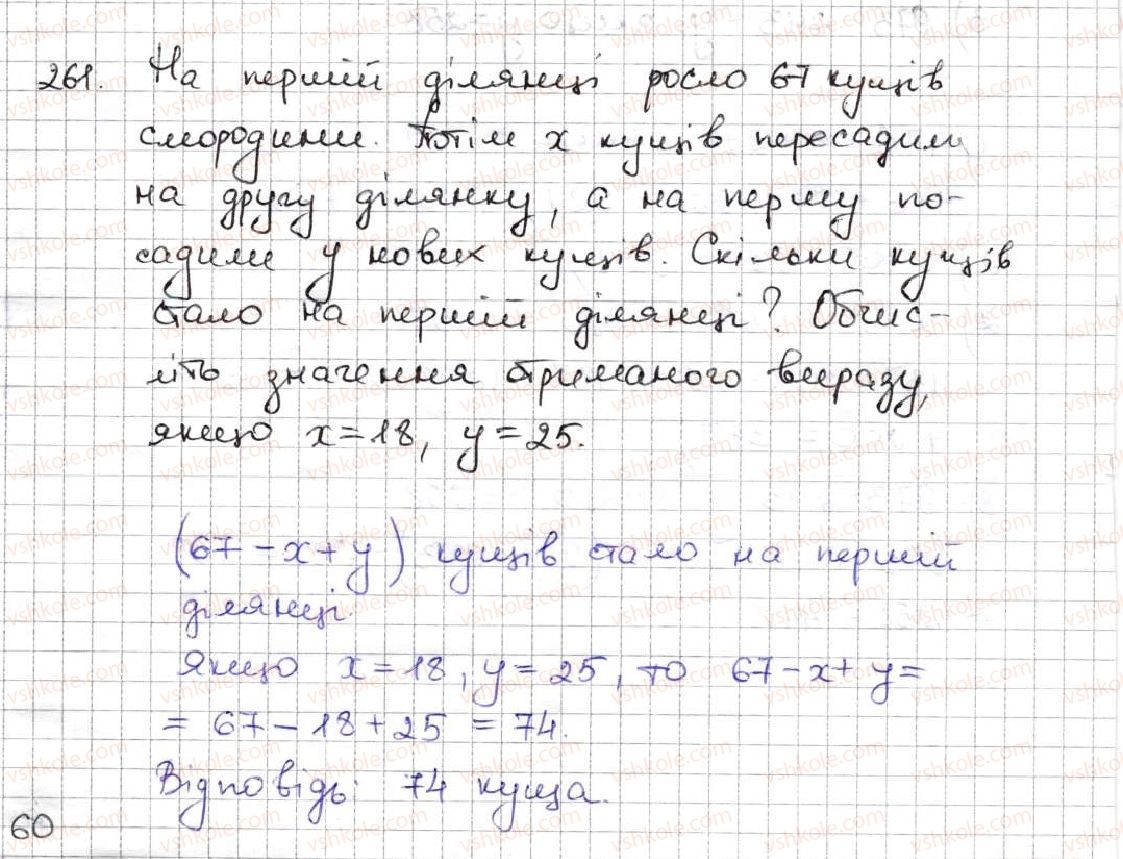 261. На першій ділянці росло 67 кущів
смородини. Потім x кущів пересадили
на другу ділянку, а на першу по-
садили y нових кущів. Скільки кущів
стало на першій ділянці? Обчис-
літь значення отриманого виразу,
якщо x=18, y=25.
(67-x+y) кущів стало на першій
ділянці.
Якщо x=18, y=25, то 67-x+y=
= 67-18+25 = 74.
Відповідь: 74 куща.
60